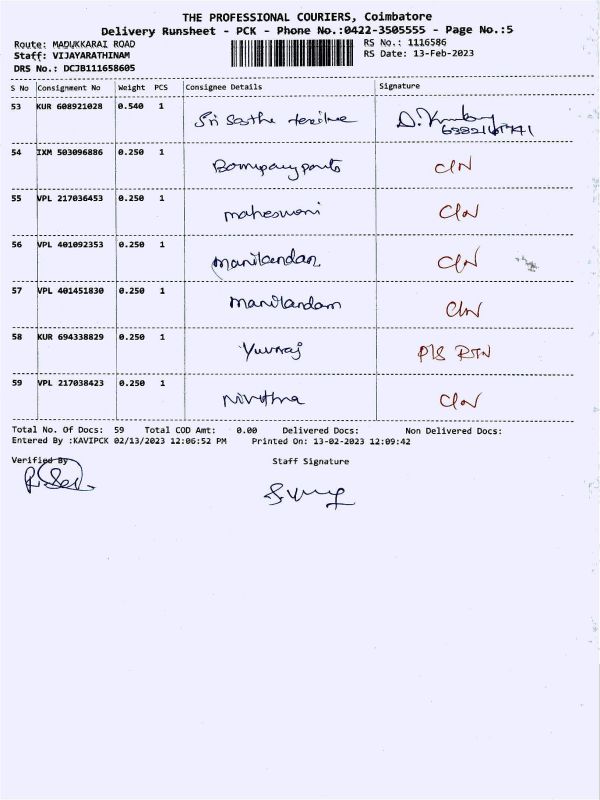 THE PROFESSIONAL COURIERS, Coimbatore
Delivery Runsheet - PCK - Phone No.:0422-3505555 - Page No.:5
Route: MADUKKARAI ROAD RS No.: 1116586
Staff: VIJAYARATHINAM RS Date: 13-Feb-2023
DRS No.: DCJB111658605
S No Consignment No Weight PCS Consignee Details Signature
53 KUR 608921028 0.540 1 Sri Sasthe textile
54 IXM 503096886 0.250 1 C/N
55 VPL 217036453 0.250 1 maheswari C/N
56 VPL 401092353 0.250 1 manikandan C/N
57 VPL 401451830 0.250 1 manikandan C/N
58 KUR 694338829 0.250 1 Yuvraj P/S RTN
59 VPL 217038423 0.250 1 Nivetha C/N
Total No. Of Docs: 59 Total COD Amt: 0.00 Delivered Docs: Non Delivered Docs:
Entered By :KAVIPCK 02/13/2023 12:06:52 PM Printed On: 13-02-2023 12:09:42
Verified By Staff Signature